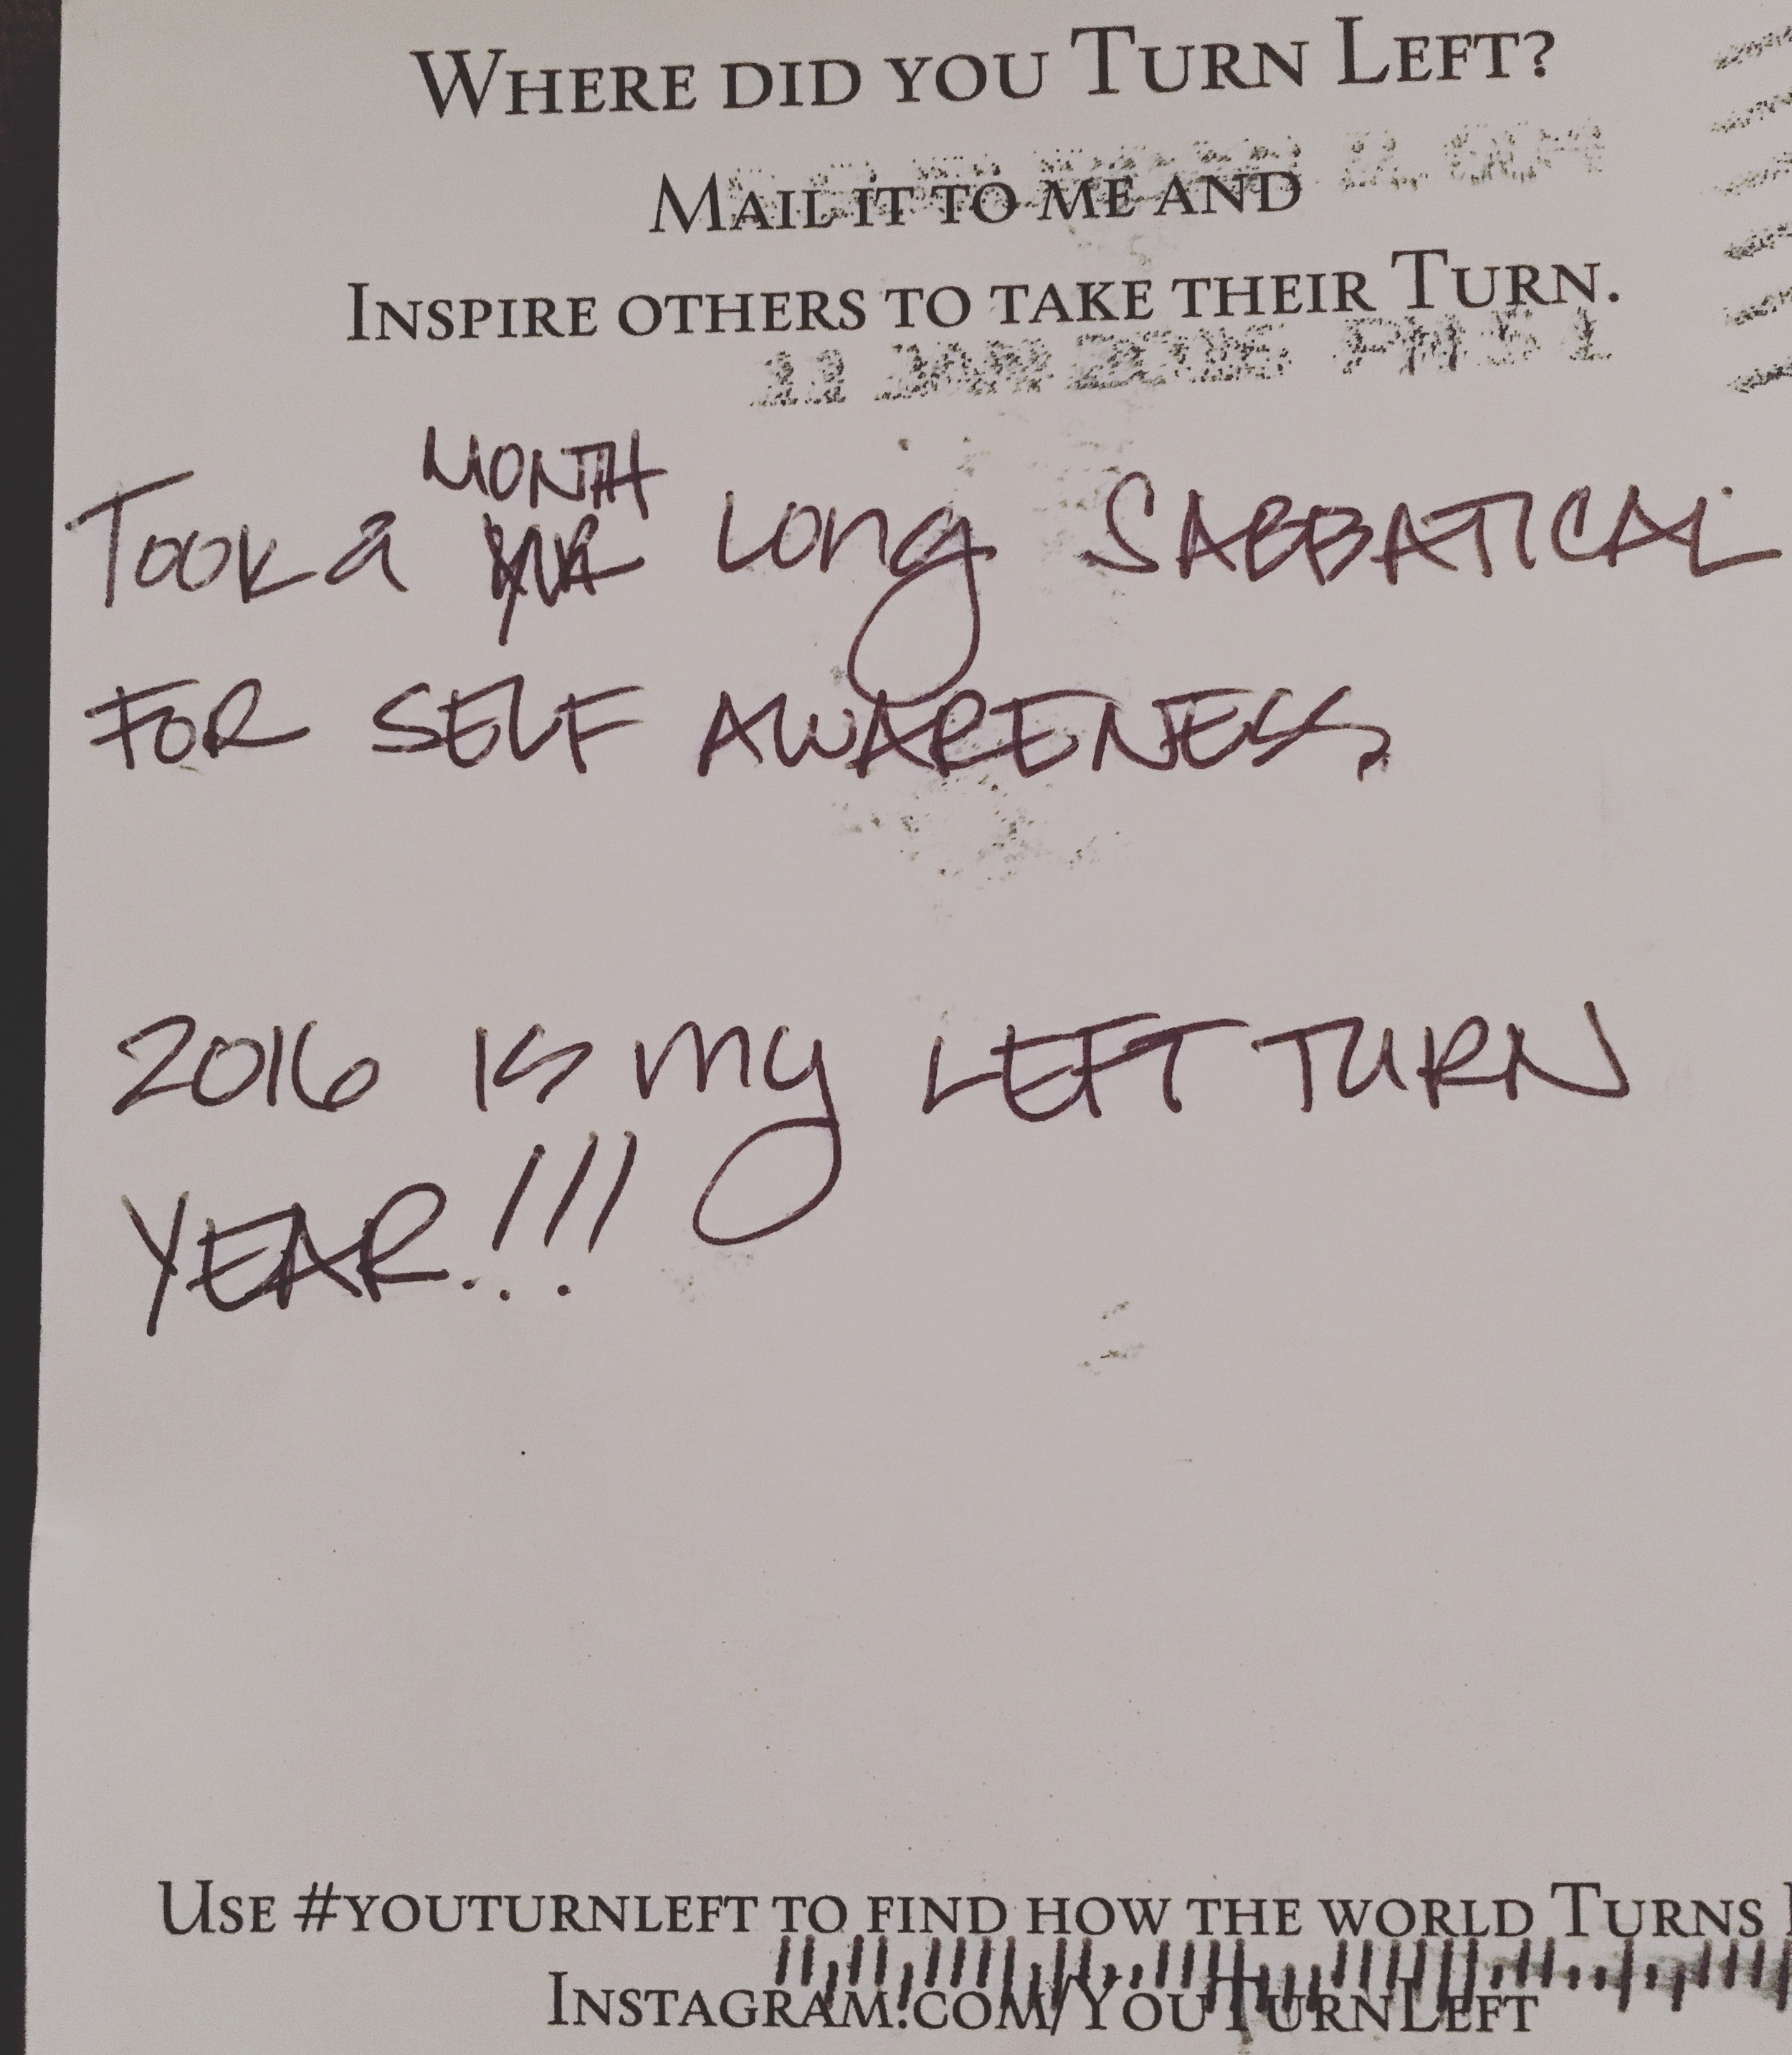 WHERE DID YOU TURN LEFT?
MAIL IT TO ME AND
INSPIRE OTHERS TO TAKE THEIR TURN.
11 JAN 2016 PM 5 L
MONTH
TOOK a LONg SABBATICAL
FOR SELF AWARENESS,
2016 IS my LEFT TURN
YEAR!!!
USE #YOUTURNLEFT TO FIND HOW THE WORLD TURNS
INSTAGRAM.COM/YOUTURNLEFT